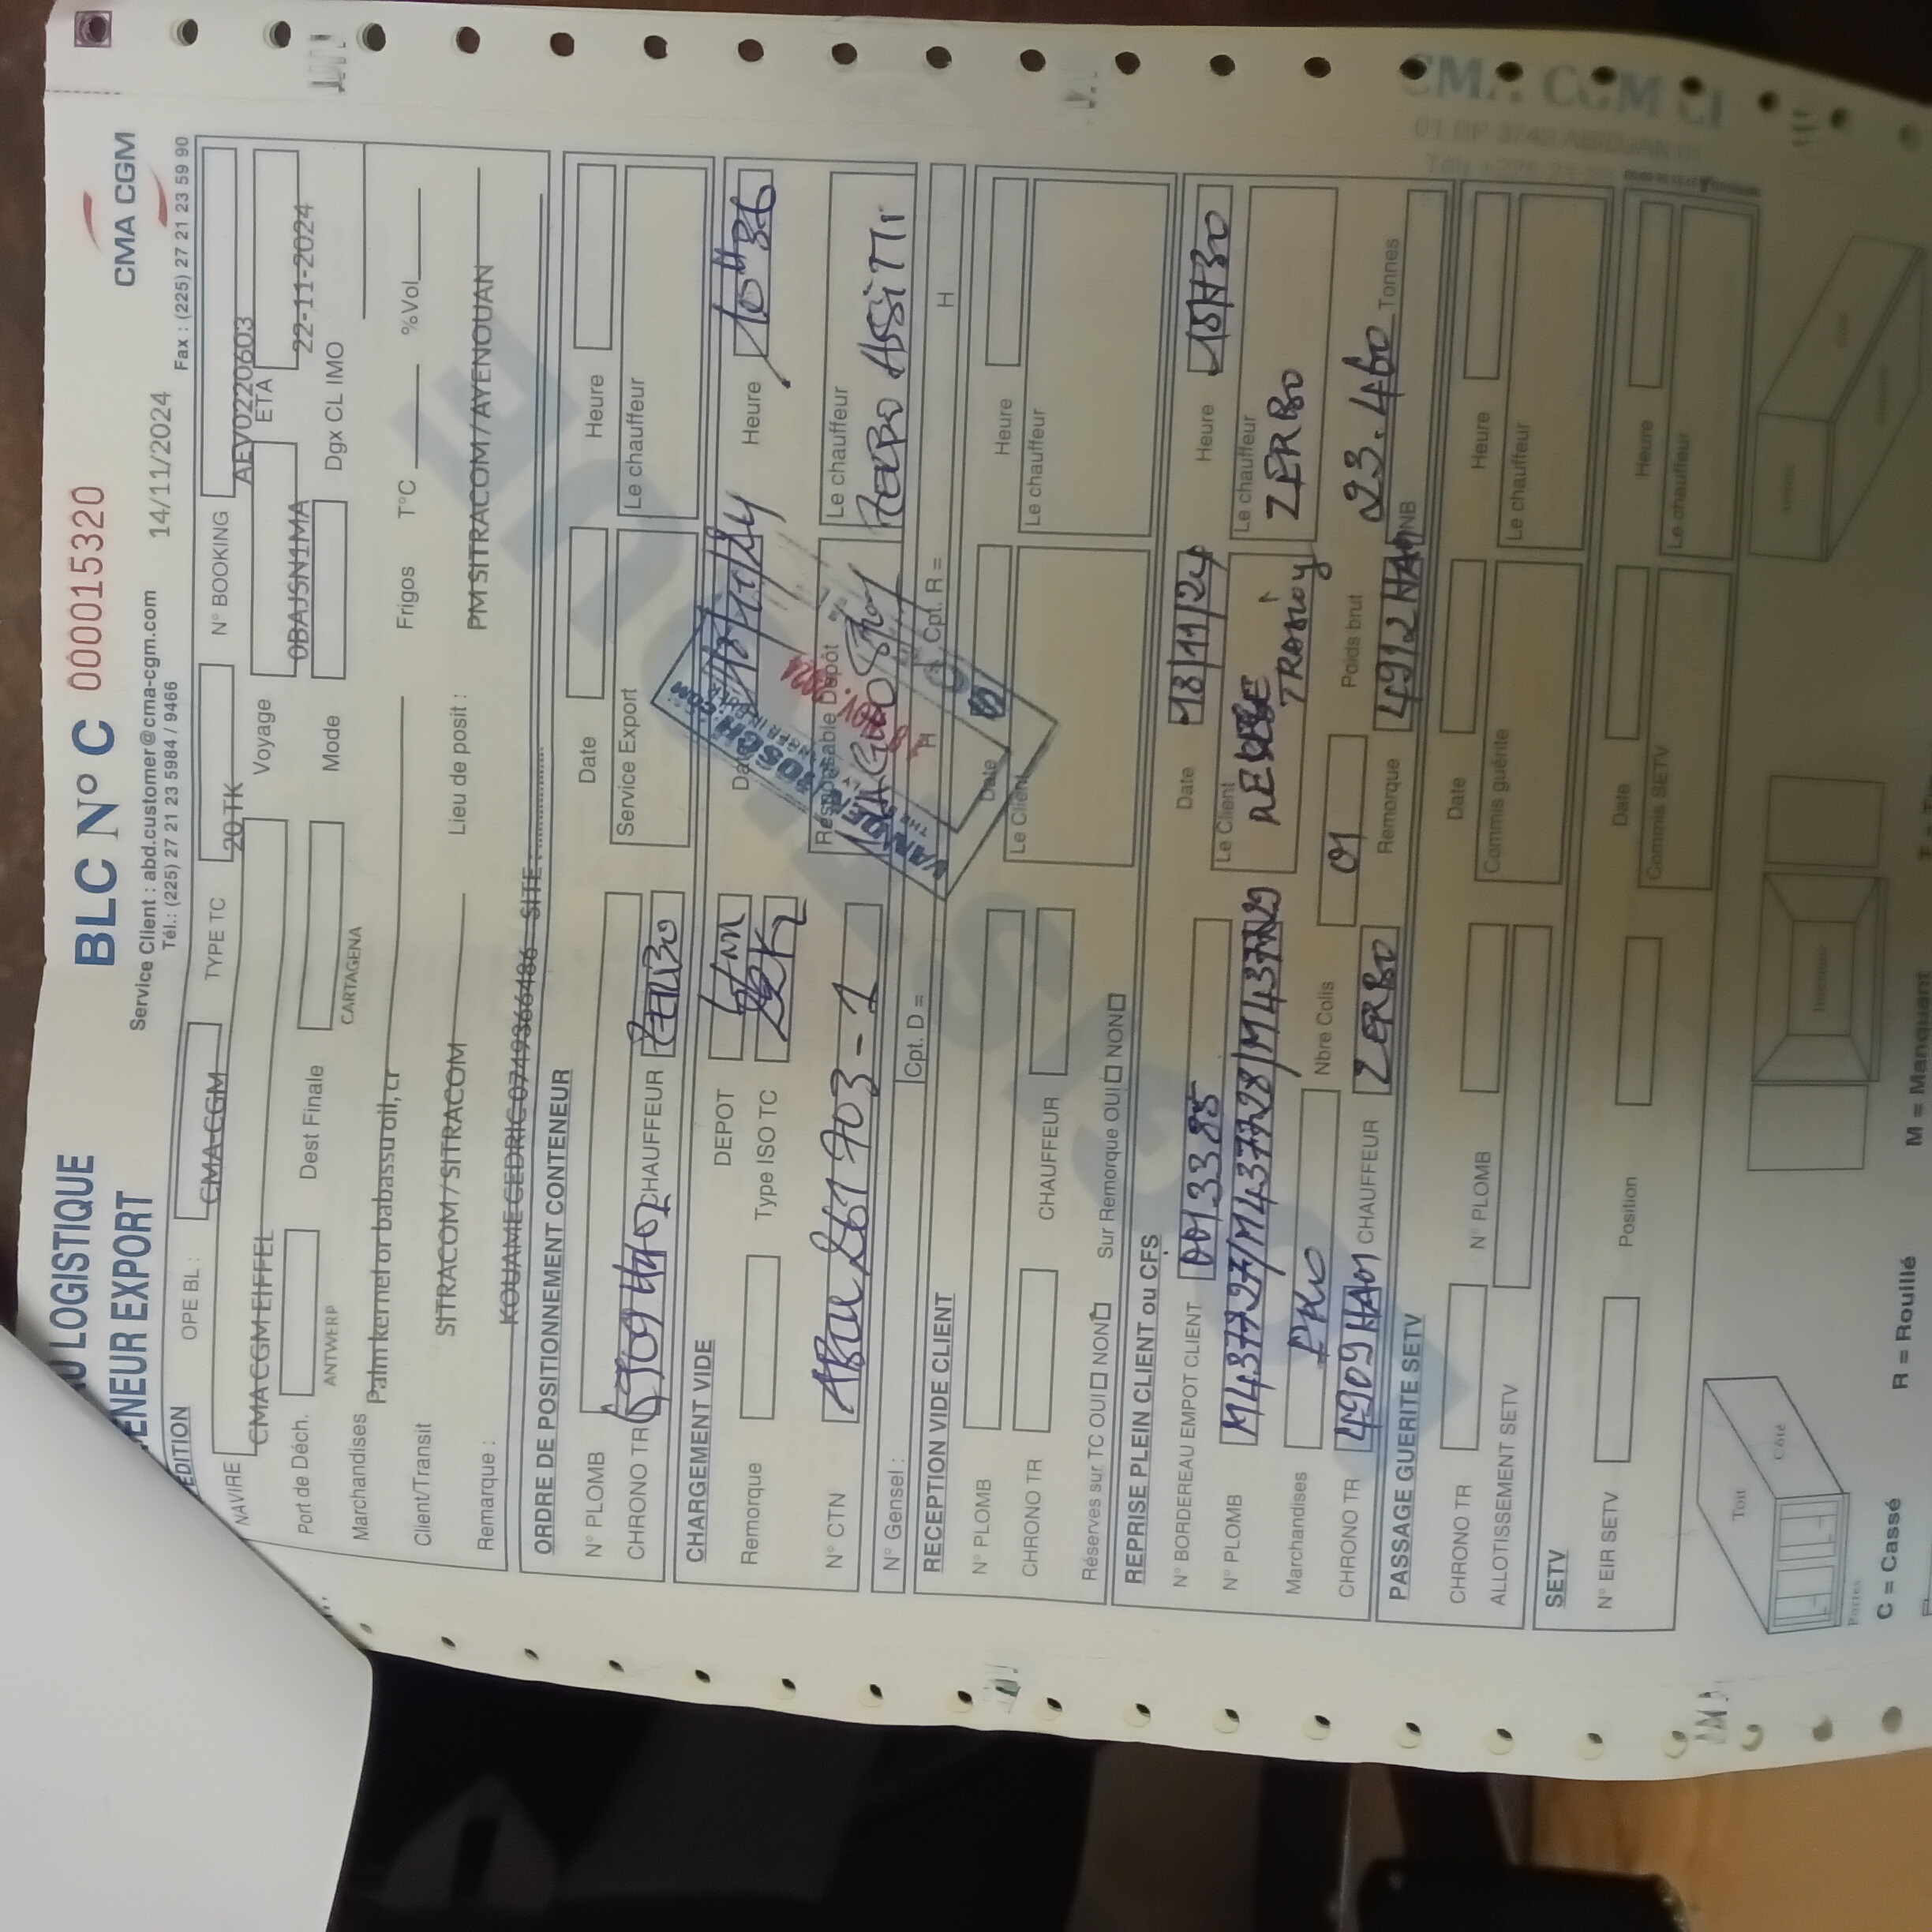 LOGISTIQUE
BLC N° C 000015320
ENEUR EXPORT
CMA CGM
Service Client : abd.customer@cma-cgm.com
14/11/2024
Tél.: (225) 27 21 23 5984 / 9466
Fax : (225) 27 21 23 59 90
EDITION OPE BL : CMA-CGM TYPE TC 20 TK N° BOOKING AEV0220603
NAVIRE CMA CGM EIFFEL Voyage 0BAJSN1MA ETA 22-11-2024
Port de Déch. ANTWERP Dest Finale CARTAGENA Mode Dgx CL IMO
Marchandises Palm kernel or babassu oil, cr
Frigos T°C %Vol
Client/Transit SITRACOM / SITRACOM Lieu de posit : PM SITRACOM / AYENOUAN
Remarque : KOUAME CEDRIC 0749366486 SITE :..................
ORDRE DE POSITIONNEMENT CONTENEUR
N° PLOMB Date Heure
CHRONO TR CHAUFFEUR ZERBO Service Export Le chauffeur
CHARGEMENT VIDE
DEPOT Date 18/11/24 Heure 10H36
Remorque Type ISO TC 22K2
N° CTN ABCU 261703-1 Responsable Dépôt Le chauffeur
ZERBO ASSITI
VANDEN BOSCH.COM
18 NOV. 2024
N° Gensel : Cpt. D = H Cpt. R = H
RECEPTION VIDE CLIENT
N° PLOMB Date Heure
CHRONO TR CHAUFFEUR Le Client Le chauffeur
Réserves sur TC OUI NON Sur Remorque OUI NON
REPRISE PLEIN CLIENT ou CFS
N° BORDEREAU EMPOT CLIENT 0013385 Date 18/11/24 Heure 15H30
N° PLOMB M437727/M437728/M437729 Le Client Le chauffeur
ZERBO
Marchandises PKO Nbre Colis 01 Poids brut 23.460 Tonnes
CHRONO TR 4909HA01 CHAUFFEUR ZERBO Remorque 4912HA01 NB
PASSAGE GUERITE SETV
CHRONO TR N° PLOMB Date Heure
ALLOTISSEMENT SETV Commis guérite Le chauffeur
SETV
N° EIR SETV Position Date Heure
Commis SETV Le chauffeur
Toit
Côté
Portes
Intérieur
C = Cassé R = Rouillé M = Manquant